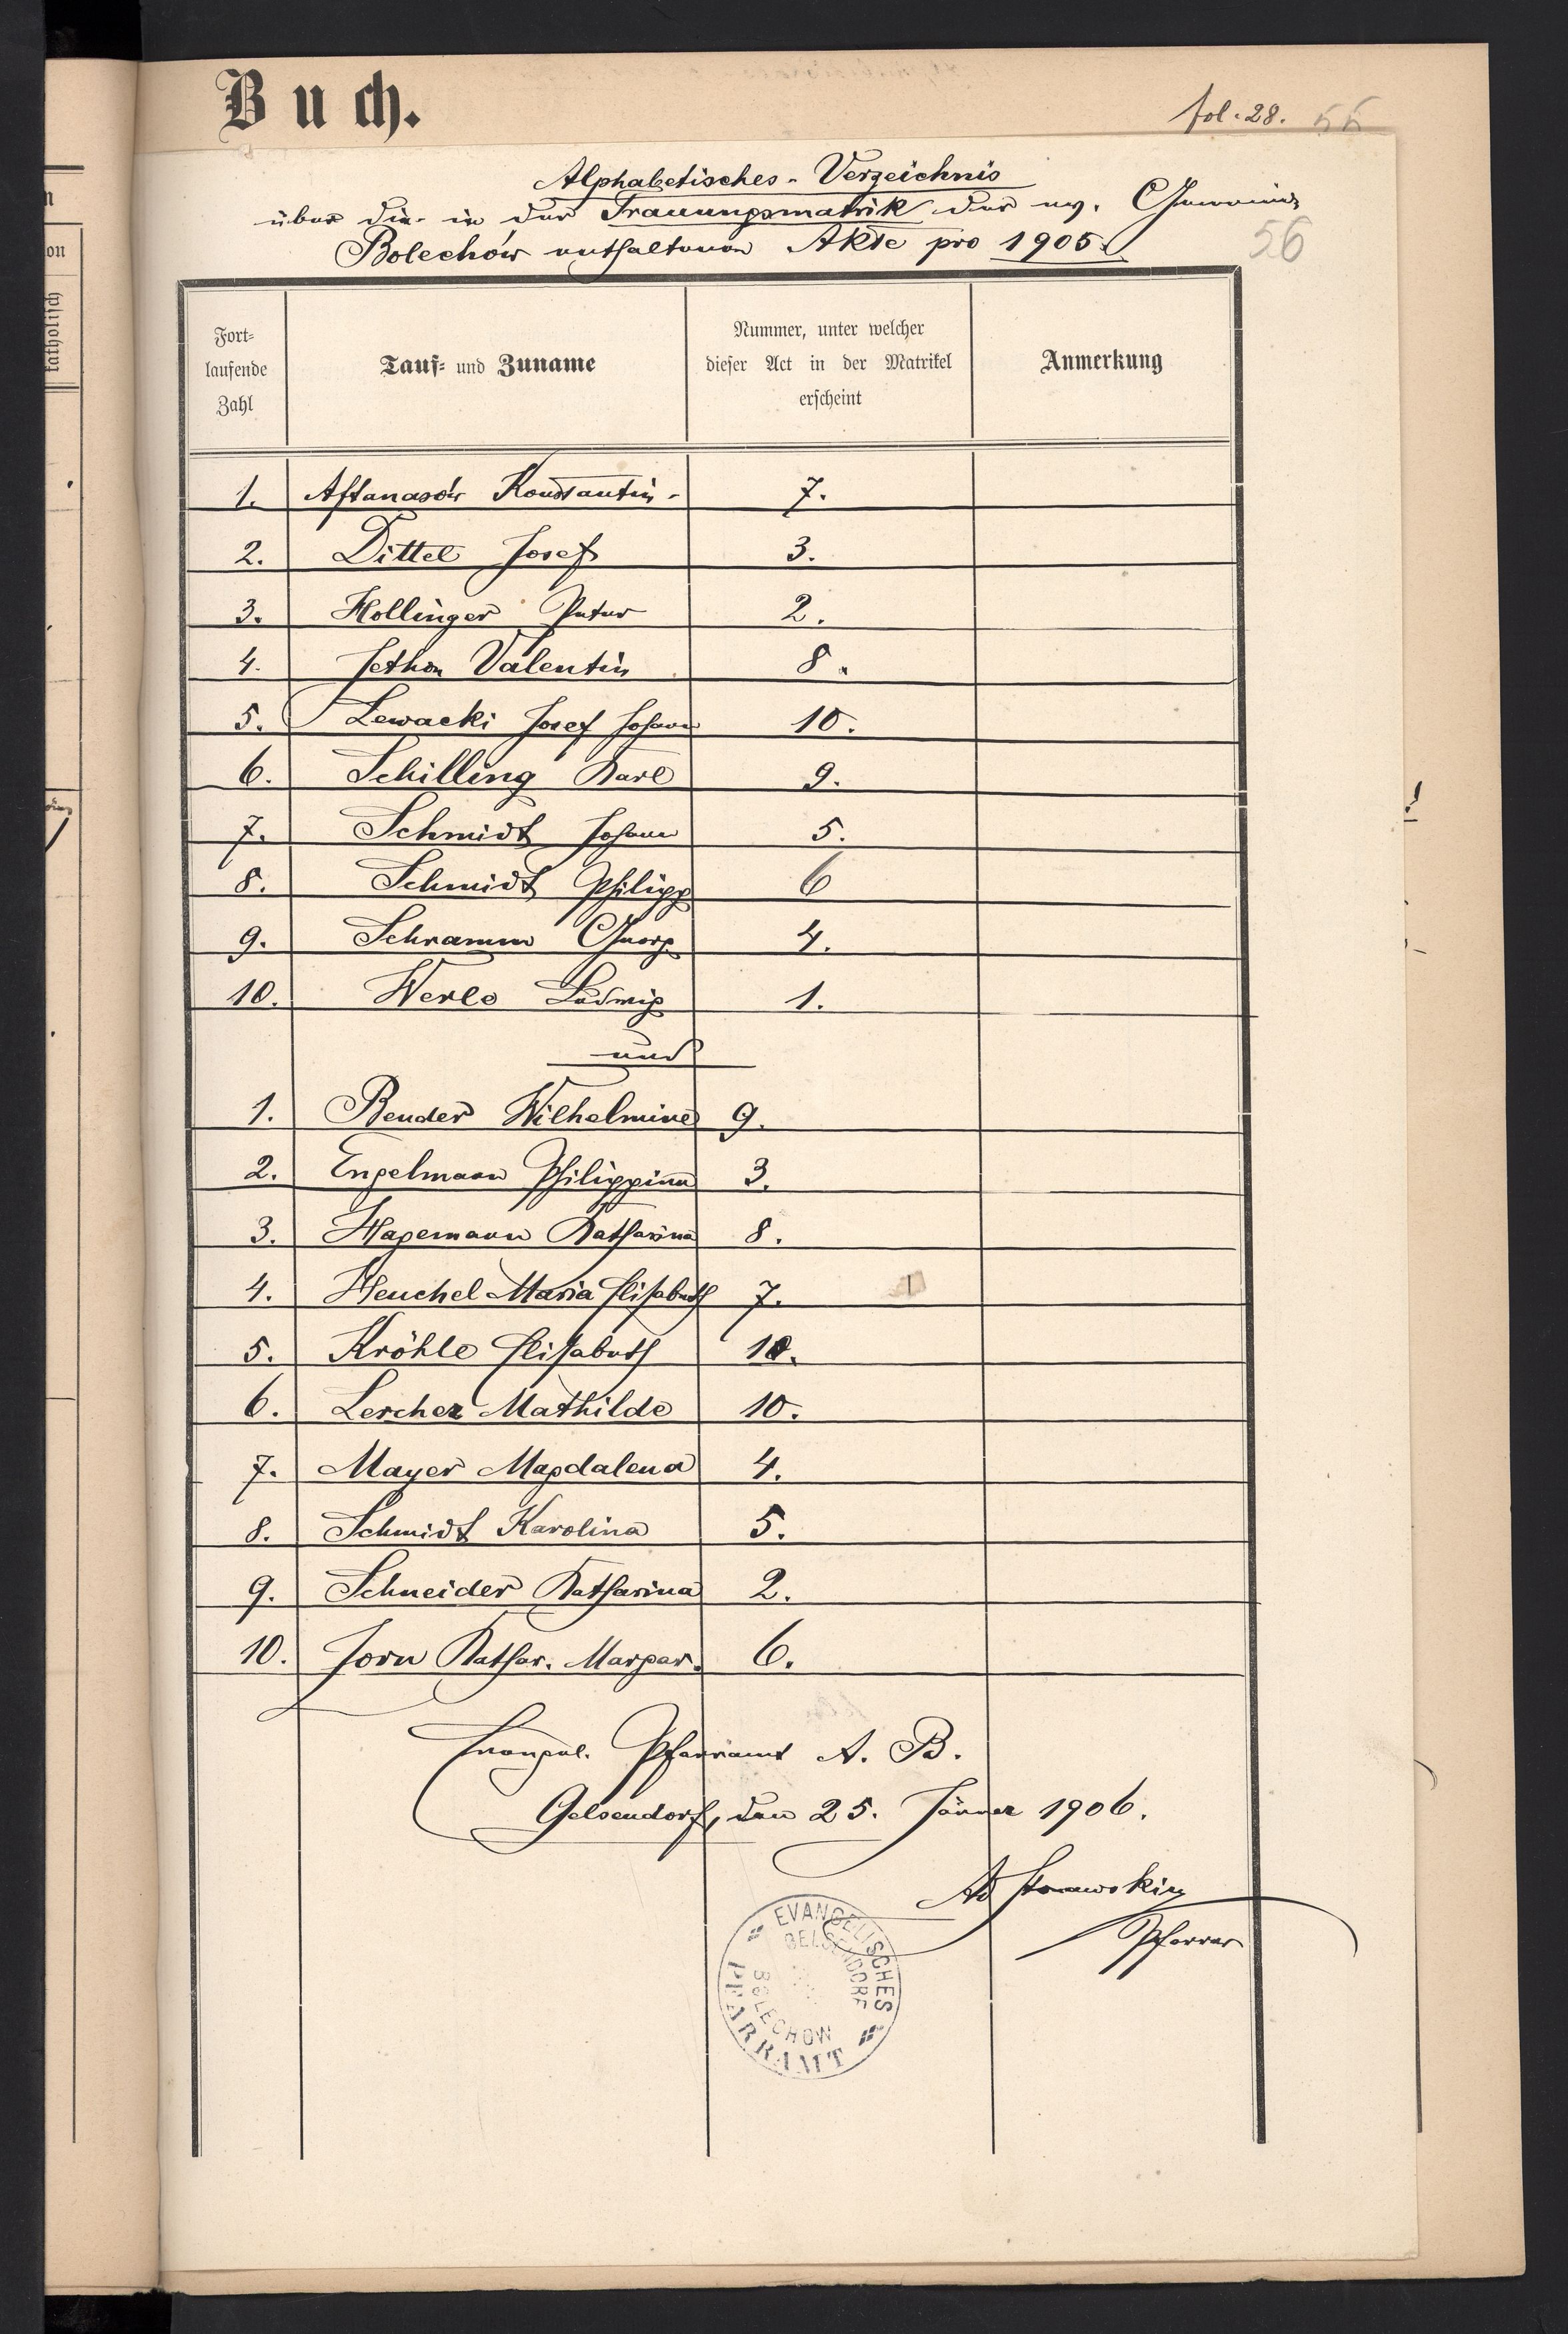 Buch.
fol. 28.
56
Alphabetisches-Verzeichnis
über die in der Trauungsmatrik der ev. Gemeinde
Bolechów enthaltenen Akte pro 1905.
Fort-laufende Zahl | Tauf- und Zuname | Nummer, unter welcher dieser Act in der Matrikel erscheint | Anmerkung
1. Aftanasów Konstantin 7.
2. Dittel Josef 3.
3. Hollinger Peter 2.
4. Jethon Valentin 8.
5. Lewacki Josef Johann 10.
6. Schilling Karl 9.
7. Schmidt Johann 5.
8. Schmidt Philipp 6
9. Schramm Georg 4.
10. Werle Ludwig 1.
und
1. Bender Wilhelmine 9.
2. Engelmann Philippina 3.
3. Hagemann Katharina 8.
4. Heuchel Maria Elisabeth 7.
5. Kröhle Elisabeth
6. Lercher Mathilde 10.
7. Mayer Magdalena 4.
8. Schmidt Karolina 5.
9. Schneider Katharina 2.
10. Jorn Kathar. Margar. 6.
Evangel. Pfarramt A. B.
Gelsendorf, den 25. Jänner 1906.
Pfarrer
EVANGELISCHES PFARRAMT
GELSENDORF BOLECHOW